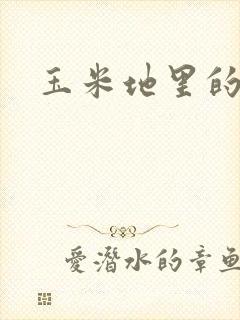 玉米地里的
愛潛水的章魚